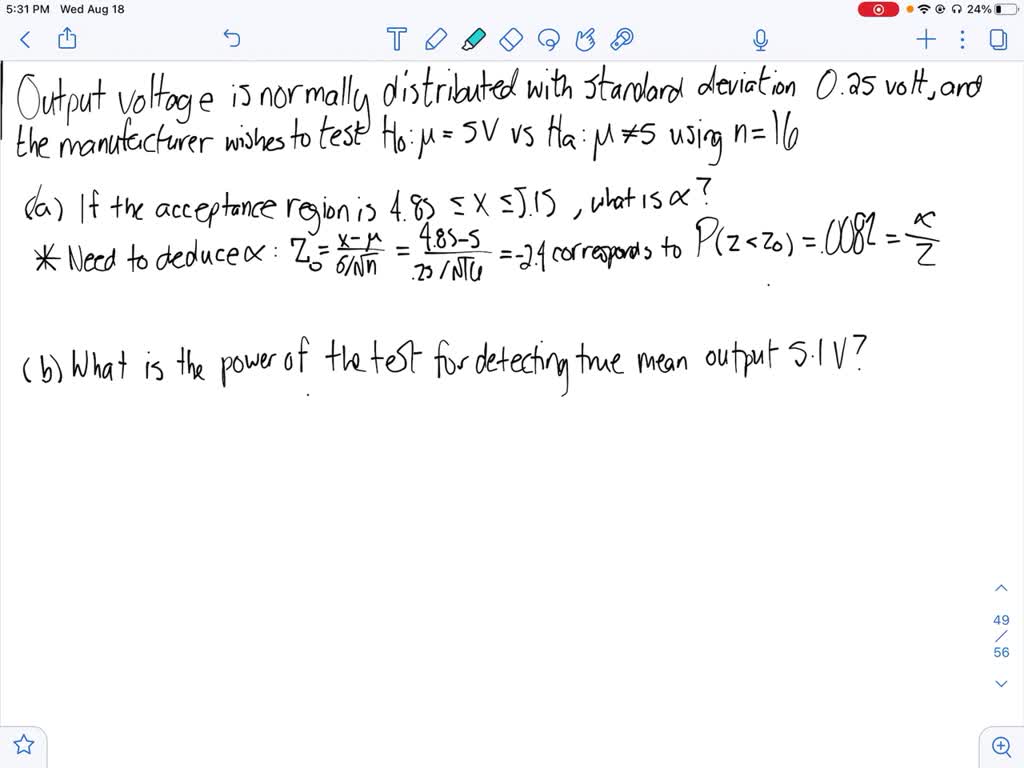 5:31 PM Wed Aug 18
24%
Output voltage is normally distributed with standard deviation 0.25 volt, and
the manufacturer wishes to test H₀: μ = 5V vs Ha: μ ≠ 5 using n = 16
(a) If the acceptance region is 4.85 ≤ x ≤ 5.15, what is α?
* Need to deduce α: Z₀ = (x-μ)/(σ/√n) = (4.85-5)/(.25/√16) = -2.4 corresponds to P(z < z₀) = .0082 = α/2
(b) What is the power of the test for detecting true mean output 5.1V?
49
/
56